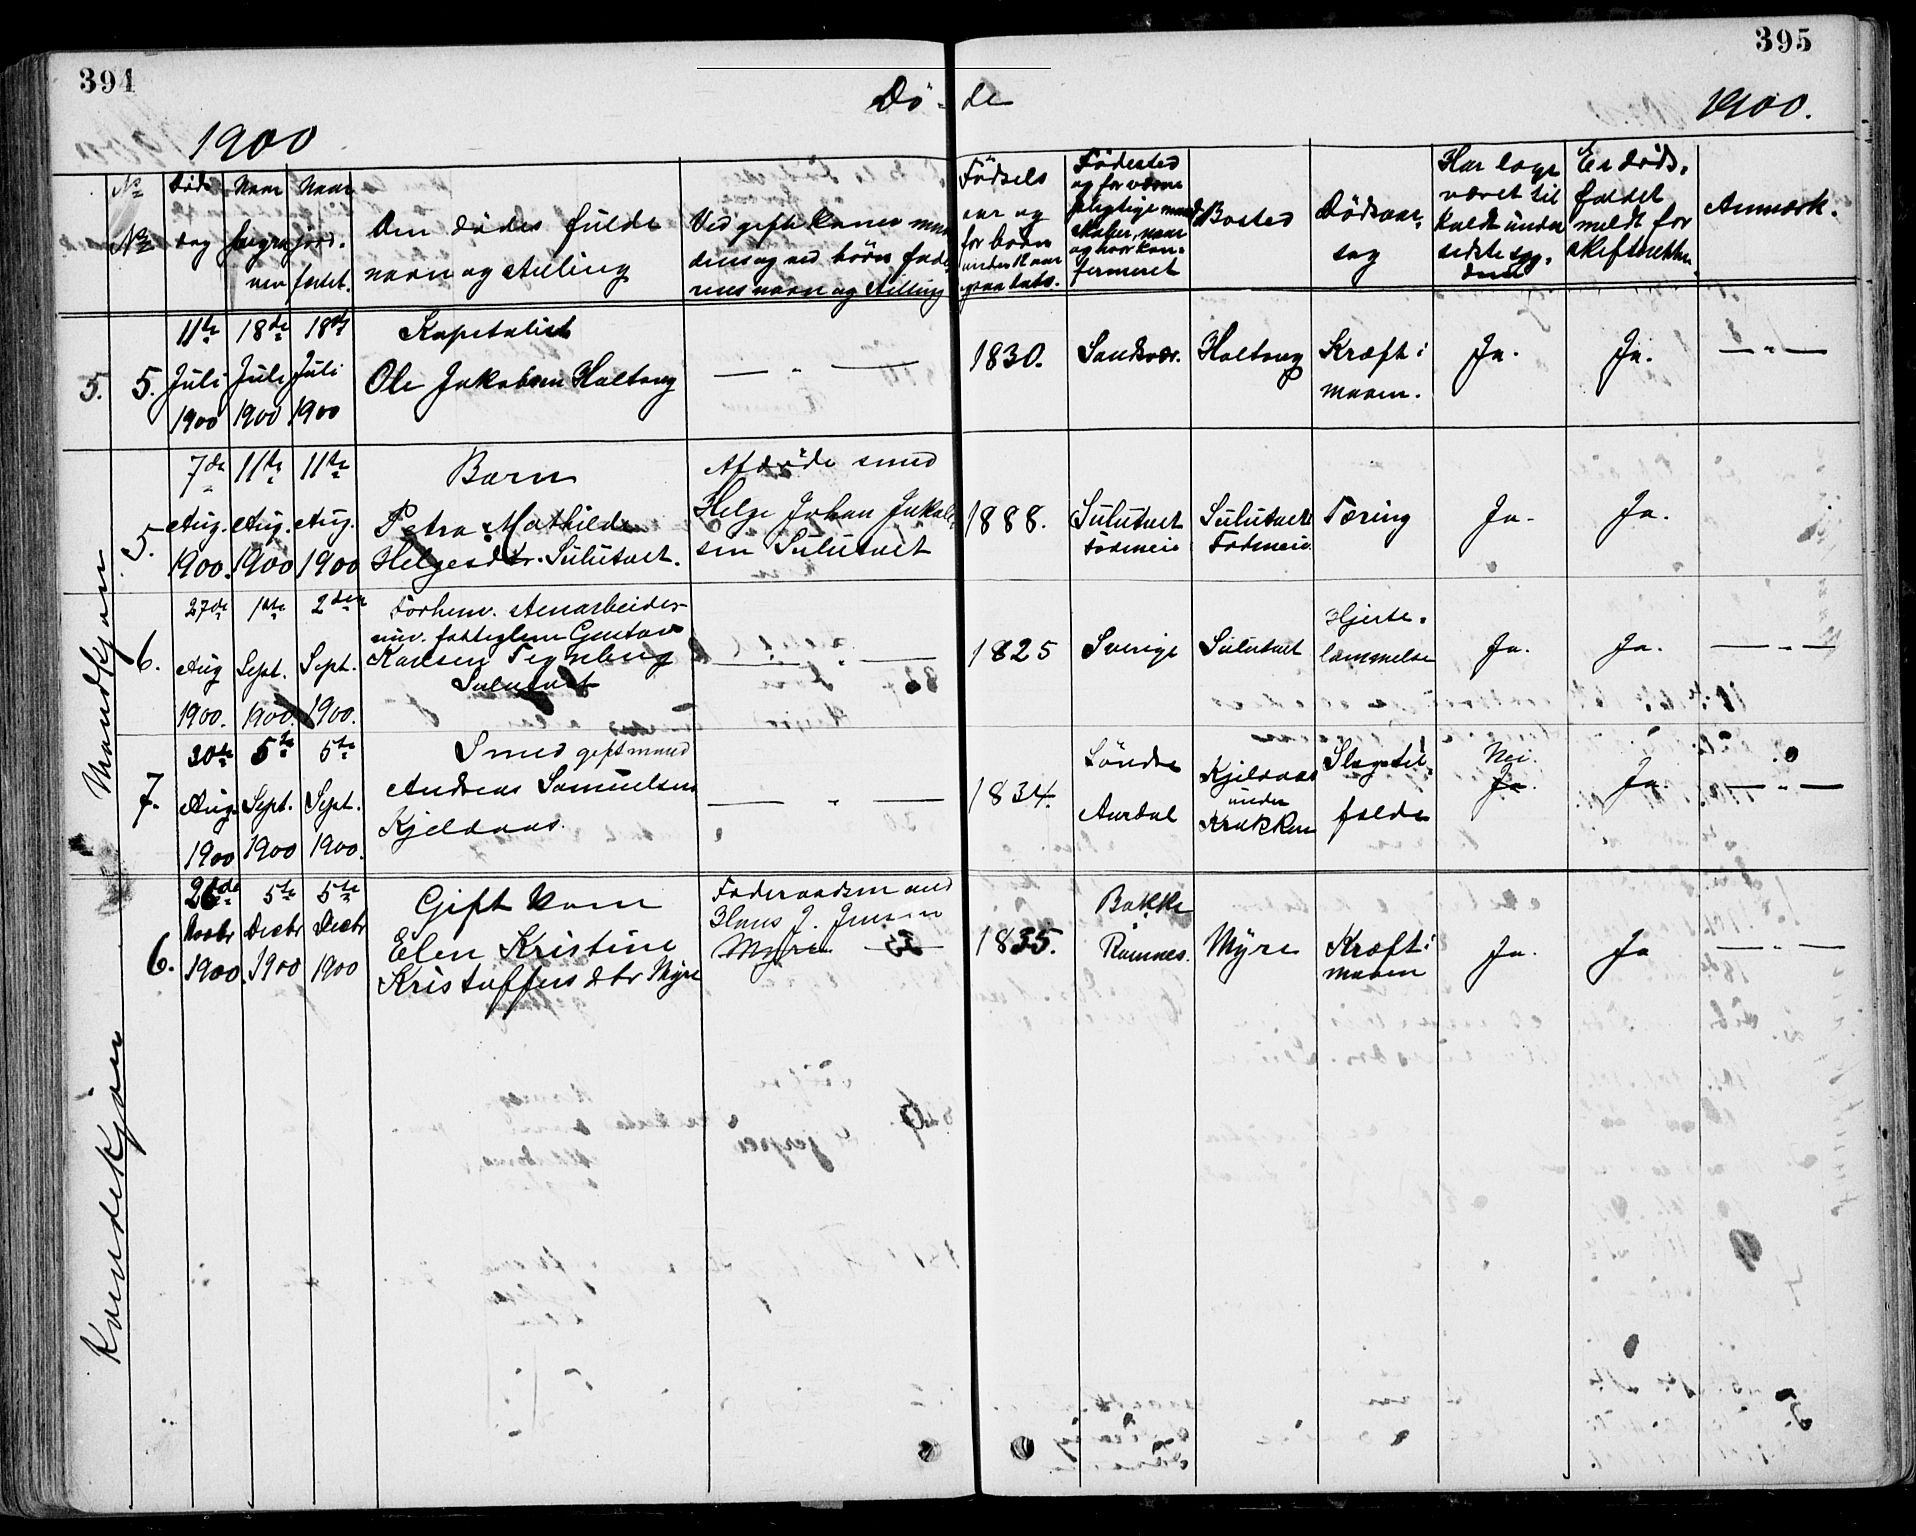 394
395
Dö-de
1900
1900.
No No
Döds dag
Naar begra ven
Naar jord- fæstet.
Den dödes fulde
navn og stilling
Ved gifte koner man
dens og ved börn fade
rens navn og stilling
Födsels
aar og
for börn
under 12 aar
ogsaa dato.
Födested
og for værne
pligtige mand
skaber, naar
og hvor kon-
firmeret
Bosted
Dödsaar-
sag
Har læge
været til
kaldt under
sidste syg-
dom
Er döds-
faldet
meldt for
skifteretten
Anmærk.
Mandkjøn
5. 5.
11te Juli 1900
18de Juli 1900
18de Juli 1900
Kapitalist
Ole Jakobsen Holtung
— „ —
1830.
Sandsvær.
Holtung
Kræft i
maven.
Ja.
Ja.
— „ —
5.
7de Aug. 1900.
11te Aug. 1900
11te Aug. 1900
Barn
Petra Mathilde
Helgesdtr. Sulutvet.
Afdöde smed
Helge Johan Jakob-
sen Sulutvet
1888.
Sulutvet
Fodmeie
Sulutvet
Fodmeie
Tæring
Ja.
Ja.
6.
27de Aug 1900.
1ste Sept. 1900.
2den Sept. 1900.
Forhenv. stenarbeider
nuv. fattiglem Gustav
Karlsen Tegneberg
Sulutvet
— „ —
1825
Sverige
Sulutvet
Hjerte-
lammelse
Ja.
Ja.
— „ —
7.
30te Aug. 1900
5te Sept. 1900
5te Sept. 1900.
Smed gift mand
Andreas Samuelsen
Kjeldaas.
— „ —
1834.
Söndre
Aurdal
Kjeldaas
under
Krakken
Slagtil-
fælde
Nei.
Ja.
Ja.
— „ —
Kvindekjøn
6.
26de Novbr 1900.
5te Decbr 1900
5te Decbr 1900
Gift kone
Elen Kristine
Kristoffersdtr Myre
Föderaadsmand
Hans J. Jensen
Myre
1835.
Bakke
Ramnes.
Myre
Kræft i
maven
Ja.
Ja
— „ —